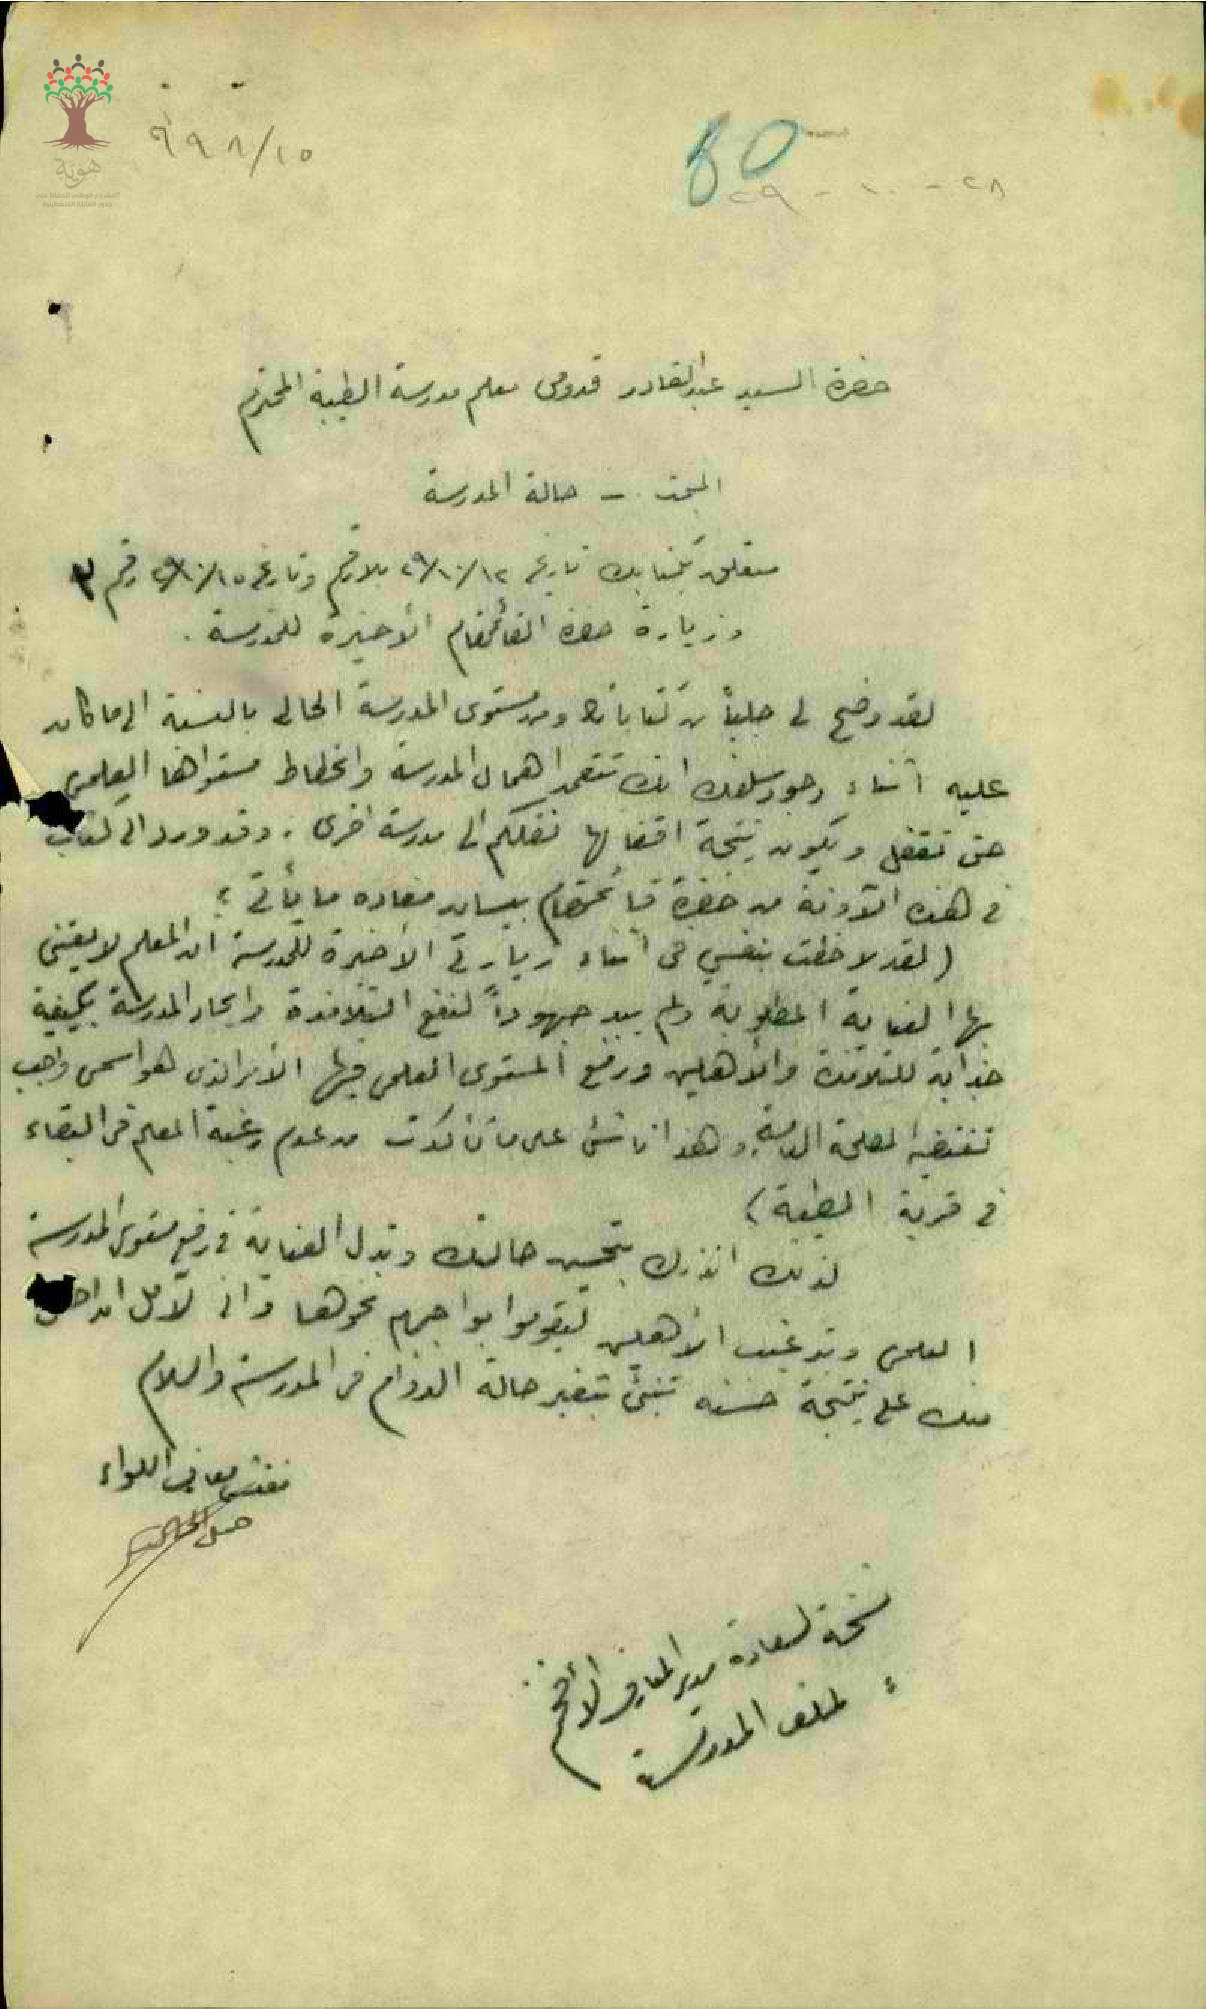 هوية
المشروع الوطني للحفاظ على
جذور العائلة الفلسطينية
٩٩٨/١٥
80
٢٨ - ١٠ - ٢٩
حضرة السيد عبد القادر قدومي معلم مدرسة الطيبة المحترم
البحث . – حالة المدرسة
متعلق بكتابك تاريخ ٢٩/١٠/١٢ بلا رقم وتاريخ ٢٩/١٠/١٥ رقم ٣
وزيارة حضرة القائمقام الأخيرة للمدرسة .
لقد وضح لي جلياً من كتاباتك ومن مستوى المدرسة الحالي بالنسبة الى ما كان
عليه اثناء وجود سلفك انك تتعمد اهمال المدرسة وانحطاط مستواها العلمي
حتى تقفل ويكون نتيجة اقفالها نقلكم الى مدرسة اخرى . وقد ورد الى كتاب
في هذه الآونة من حضرة قائمقام بيسان مفاده ما يأتي :
(لقد لاحظت بنفسي في اثناء زيارتي الأخيرة للمدرسة ان المعلم لا يعتني
بها العناية المطلوبة ولم يبد جهوداً لنفع التلامذة وايجاد المدرسة بكيفية
جذابة للتلامذة والأهلين ورفع المستوى العلمي فيها الأمر الذي هو اسمى واجب
تقتضيه المصلحة العامة وهذا ناشئ على ما تأكدت من عدم رغبة المعلم في البقاء
في قرية الطيبة)
لذلك انذرك بتحسين حالتك وبذل العناية في رفع مستوى المدرسة
العلمي وترغيب الأهلين ليقوموا بواجبهم نحوها واني لآمل ان احصل
منك على نتيجة حسنة تنبئ بتغير حالة الدوام في المدرسة والسلام
مفتش معارف اللواء
نسخة لسعادة مدير المعارف الأفخم
لملف المدرسة